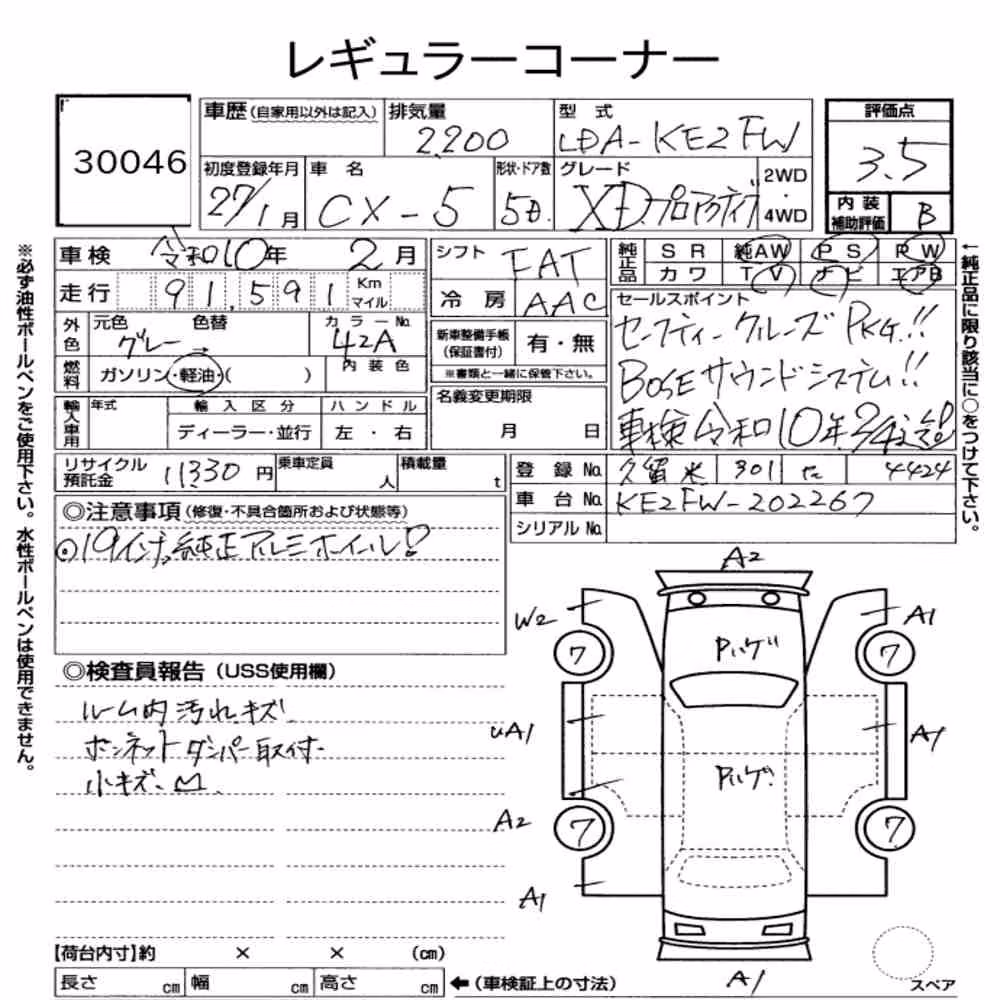 レギュラーコーナー
30046
車歴 (自家用以外は記入)
排気量
2,200
型式
LDA-KE2FW
評価点
3.5
初度登録年月
27/1月
車名
CX-5
形状・ドア数
5D.
グレード
XDプロアクティブ
2WD
・
4WD
内装
補助評価
B
車検 令和10年 2月
シフト
FAT
純正品
SR 純AW PS PW
カワ TV ナビ エアB
走行 91,591 Km マイル
冷房
AAC
セールスポイント
セーフティークルーズPKG!!
BOSEサウンドシステム!!
車検令和10年
外色
元色 色替
グレー→
カラーNo.
42A
新車整備手帳
(保証書付)
有・無
※書類と一緒に保管下さい。
燃料
ガソリン・軽油・( )
内装色
名義変更期限
月 日
輸入車用
年式
輸入区分
ディーラー・並行
ハンドル
左・右
リサイクル
預託金
11330円
乗車定員
人
積載量
t
登録No. 久留米 301 た 4424
車台No. KE2FW-202267
シリアルNo.
◎注意事項(修復・不具合箇所および状態等)
◎19インチ純正アルミホイール!
◎検査員報告(USS使用欄)
ルーム内汚れキズ
ボンネットダンパー取付
小キズ
A2
W2
A1
7
7
Pハゲ
UA1
A1
Pハゲ
A2
7
7
A1
A1
スペア
【荷台内寸】約 × × (cm)
長さ cm 幅 cm 高さ cm
←(車検証上の寸法)
※必ず油性ボールペンをご使用下さい。水性ボールペンは使用できません。
←純正品に限り該当に○をつけて下さい。